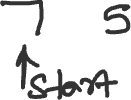 7 5
Start